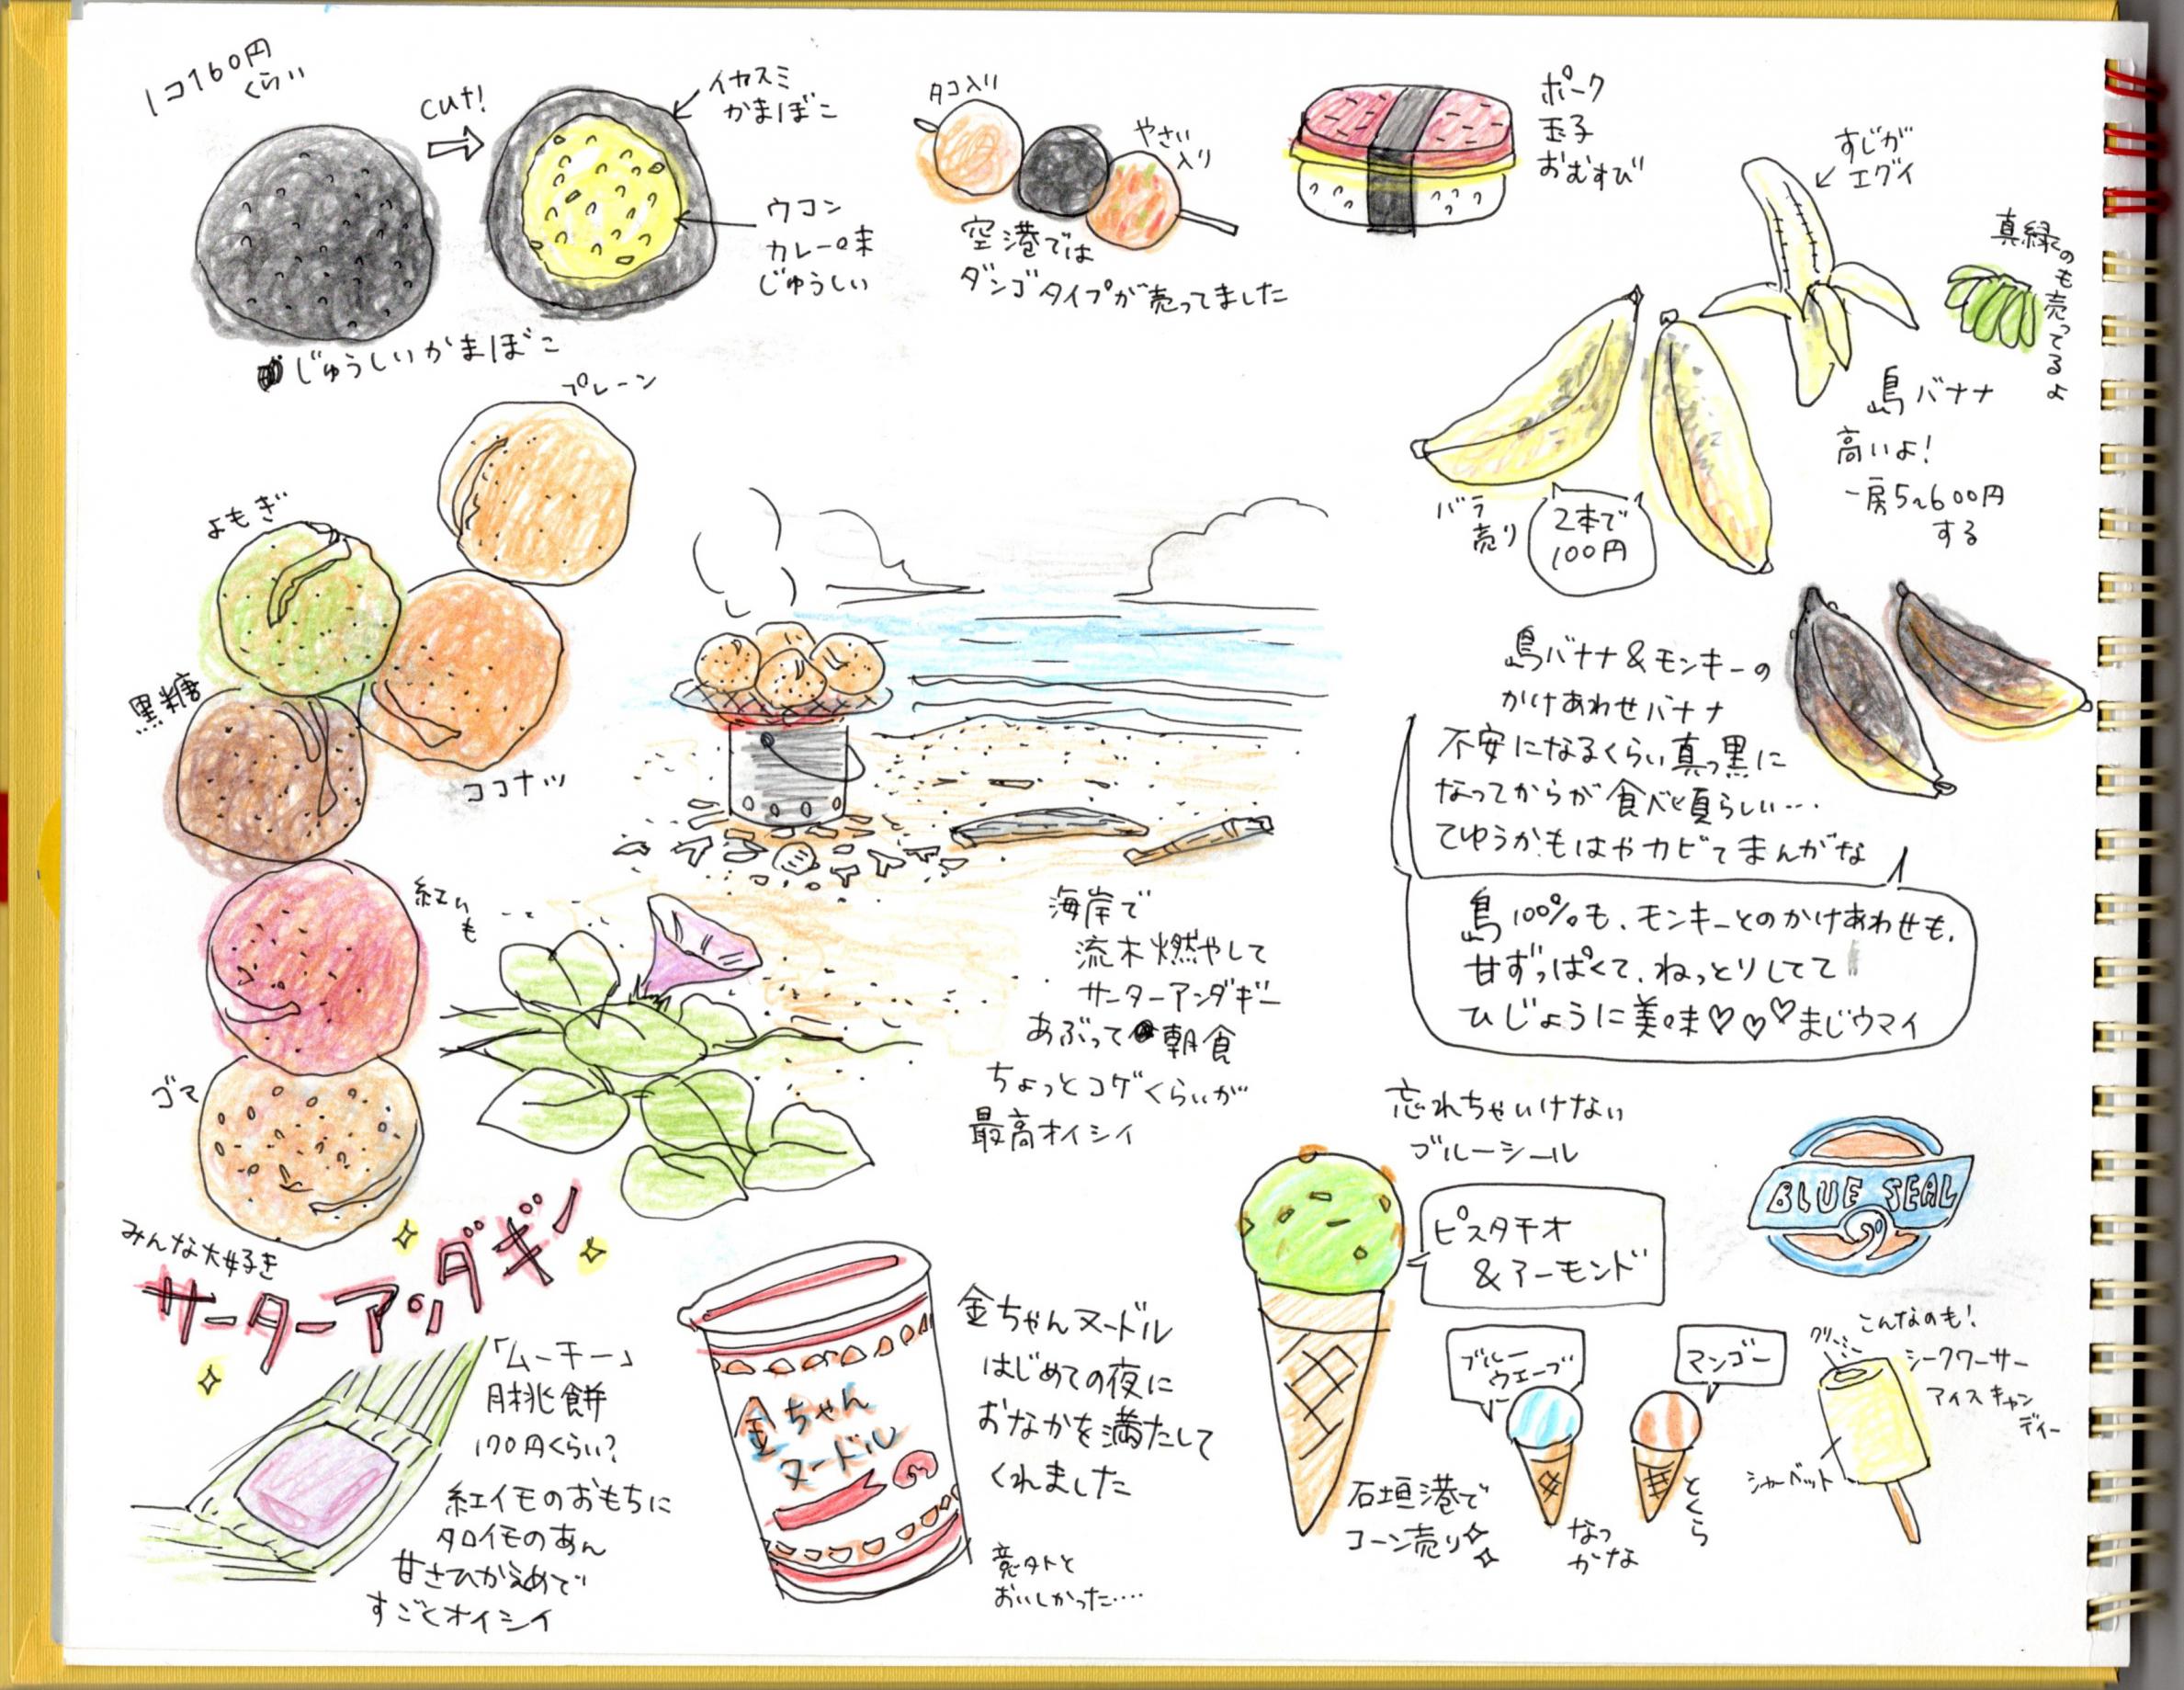 1コ160円
くらい
cut!
イカスミ
かまぼこ
ウコン
カレー味
じゅうしい
じゅうしいかまぼこ
タコ入り
やさい
入り
空港では
ダンゴタイプが売ってました
ポーク
玉子
おむすび
すじが
エグイ
真緑のも売ってるよ
島バナナ
高いよ!
一房5~600円
する
バラ
売り
2本で
100円
島バナナ&モンキーの
かけあわせバナナ
不安になるくらい真っ黒に
なってからが食べ頃らしい…
てゆうかもはやカビてまんがな
島100%も、モンキーとのかけあわせも、
甘ずっぱくて、ねっとりしてて
ひじょうに美味♡♡♡まじウマイ
プレーン
よもぎ
黒糖
ココナッツ
紅いも
ゴマ
みんな大好き
サーターアンダギー
海岸で
流木燃やして
サーターアンダギー
あぶって朝食
ちょっとコゲくらいが
最高オイシイ
「ムーチー」
月桃餅
170円くらい?
紅イモのおもちに
タロイモのあん
甘さひかえめで
すごくオイシイ
金ちゃん
ヌードル
金ちゃんヌードル
はじめての夜に
おなかを満たして
くれました
意外と
おいしかった……
忘れちゃいけない
ブルーシール
BLUE SEAL
ピスタチオ
&アーモンド
石垣港で
コーン売り
ブルー
ウエーブ
なっ
かな
マンゴー
とくら
こんなのも!
シークワーサー
アイスキャン
ディー
シャーベット